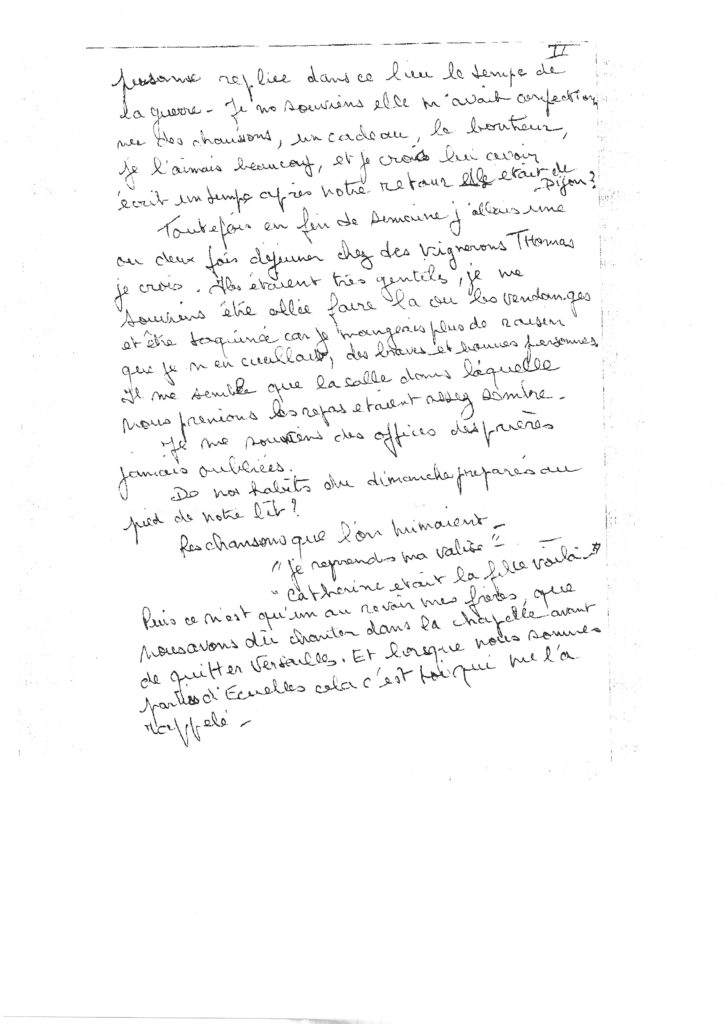 II
personne repliée dans ce lieu le temps de
la guerre - Je me souviens elle m'avait confection
née des chaussons, un cadeau, le bonheur,
je l'aimais beaucoup, et je crois lui avoir
écrit un temps après notre retour elle etait de
- Dijon ?
Toutefois en fin de semaine j'allais une
ou deux fois déjeuner chez des vignerons THOMAS
je crois. Ils étaient très gentils, je me
souviens être allée faire la ou les vendanges
et être taquinée car je mangeais plus de raisin
que je n'en cueillais, des braves et bonnes personnes
Il me semble que la salle dans laquelle
nous prenions les repas etaient assez sombre -
Je me souviens des offices des prières
jamais oubliées.
De nos habits du dimanche préparés au
pied de notre lit ?
Les chansons que l'on
"je reprendrs ma valise" -
"Catherine etait la fille voilà"
Puis ce n'est qu'un au revoir mes frères, que
nous avons dû chanter dans la chapelle avant
de quitter Versailles. Et lorsque nous sommes
parties d'Ecuelles cela c'est toi qui me l'a
rappelé -